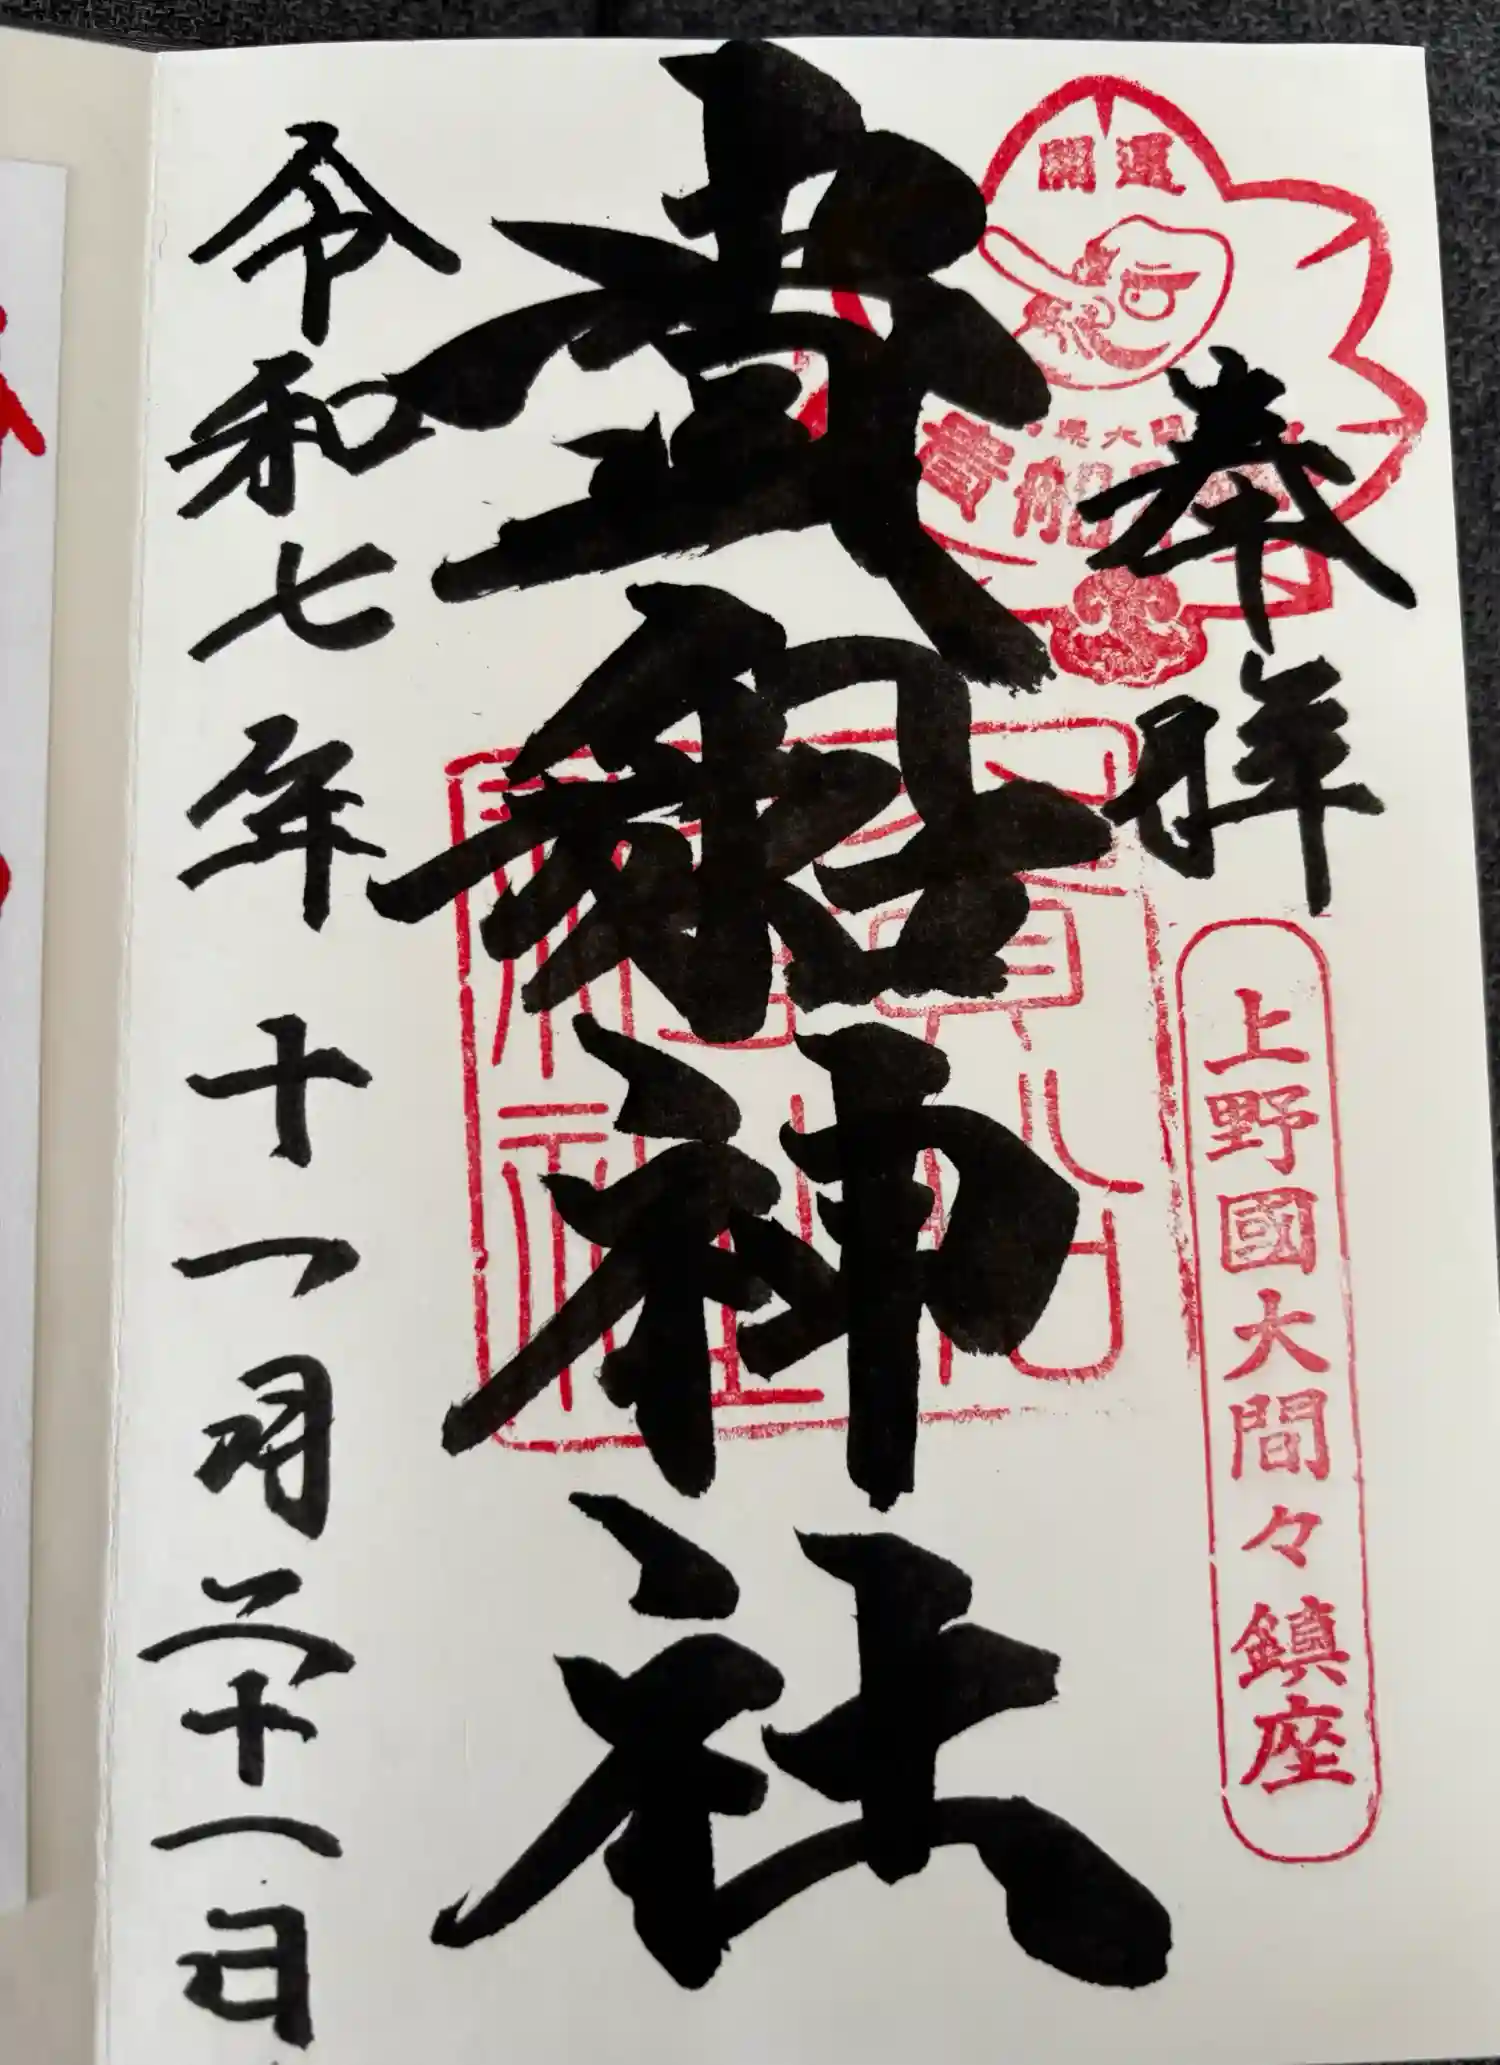 開運
県大間
貴船
奉拝
上野國大間々鎮座
貴船神社
令和七年十一月二十一日